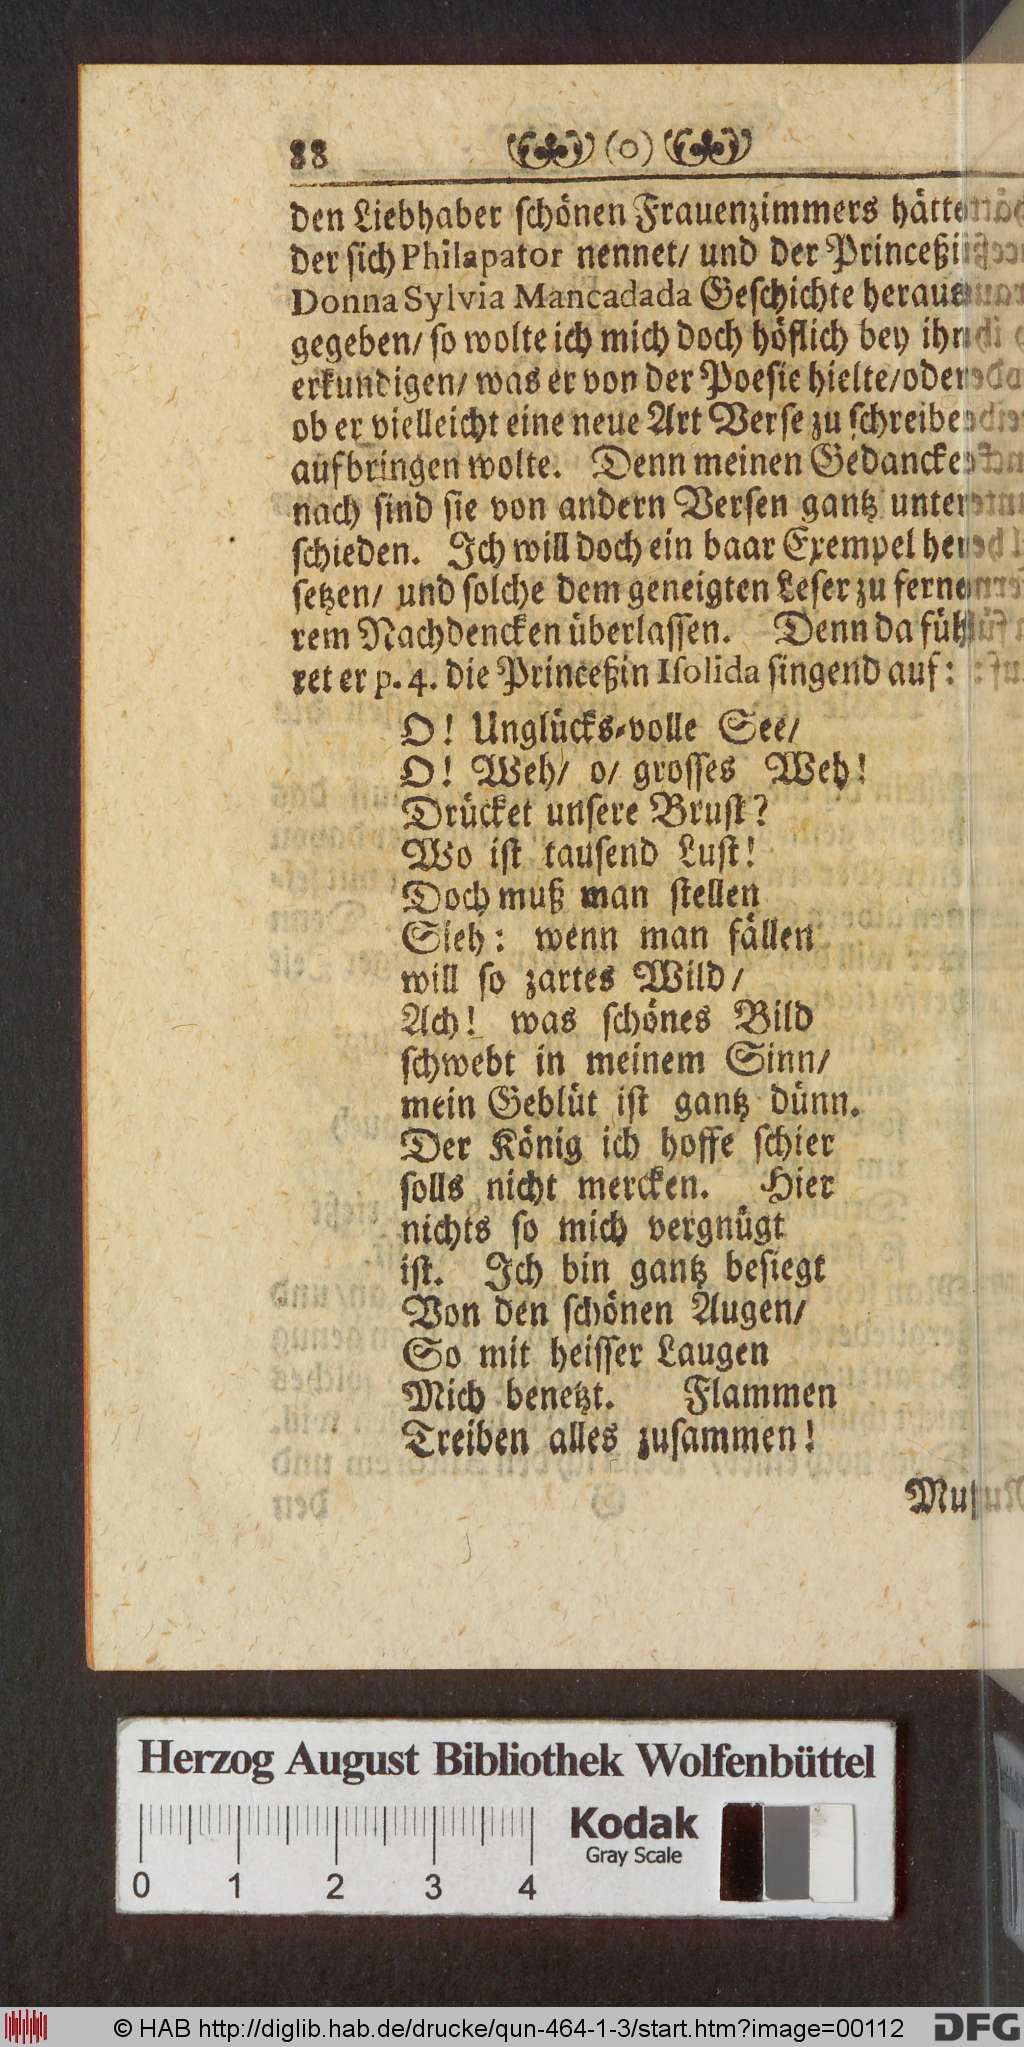 88 (o)
den Liebhaber schönen Frauenzimmers hätte
der sich Philapator nennet/ und der Princeßi
Donna Sylvia Mancadada Geschichte heraus
gegeben/ so wolte ich mich doch höflich bey ihn
erkundigen/ was er von der Poesie hielte/ oder
ob er vielleicht eine neue Art Verse zu schreibe
aufbringen wolte. Denn meinen Gedancke
nach sind sie von andern Versen gantz unter
schieden. Ich will doch ein baar Exempel her
setzen/ und solche dem geneigten Leser zu ferne
rem Nachdencken überlassen. Denn da füh
ret er p. 4. die Princeßin Isolida singend auf:
O! Unglücks-volle See/
O! Weh/ o/ grosses Weh!
Drücket unsere Brust?
Wo ist tausend Lust!
Doch muß man stellen
Sieh: wenn man fällen
will so zartes Wild/
Ach! was schönes Bild
schwebt in meinem Sinn/
mein Geblüt ist gantz dünn.
Der König ich hoffe schier
solls nicht mercken. Hier
nichts so mich vergnügt
ist. Ich bin gantz besiegt
Von den schönen Augen/
So mit heisser Laugen
Mich benetzt. Flammen
Treiben alles zusammen!
Mus
Herzog August Bibliothek Wolfenbüttel
Kodak
Gray Scale
0 1 2 3 4
© HAB http://diglib.hab.de/drucke/qun-464-1-3/start.htm?image=00112
DFG